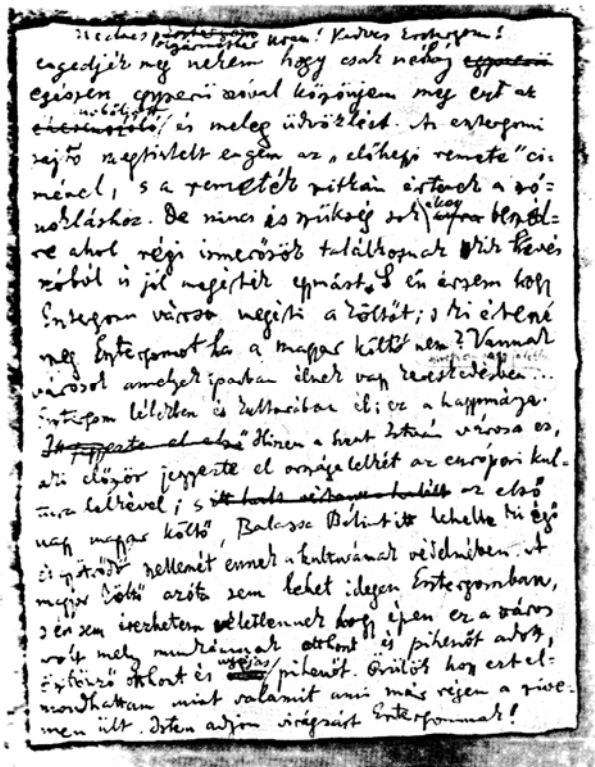 Kedves polgármester Uram! Kedves Esztergom!
engedjék meg nekem hogy csak néhány egyszerű
egészen egyszerű szóval köszönjem meg ezt az
és meleg üdvözlést. Az esztergomi
sajtó megtisztelt engem az „előhegyi remete" cí-
mével, s a remeték ritkán értenek a szó-
nokláshoz. De nincs is szükség sok beszéd-
re ahol régi ismerősök találkoznak kik kevés
szóból is jól megértik egymást. S én érzem hogy
Esztergom városa megérti a költőt; s ki értené
meg Esztergomot ha a magyar költő nem? Vannak
városok amelyek iparban élnek vagy kereskedésben...
Esztergom lélekben és kulturában él; ez a hagyománya.
Hiszen a Szent István városa ez,
aki először jegyezte el országa lelkét az európai kul-
tura lelkével; s az első
nagy magyar költő, Balassa Bálint itt lehelte ki égő
és szellemét ennek a kulturának védelmében. A
magyar költő azóta sem lehet idegen Esztergomban,
s én sem érezhetem véletlennek hogy épen ez a város
volt mely munkámnak otthont és pihenőt adott,
ösztönző otthont és nyájas pihenőt. Örülök hogy ezt el-
mondhattam mint valamit ami már régen a szíve-
men ült. Isten adjon virágzást Esztergomnak!